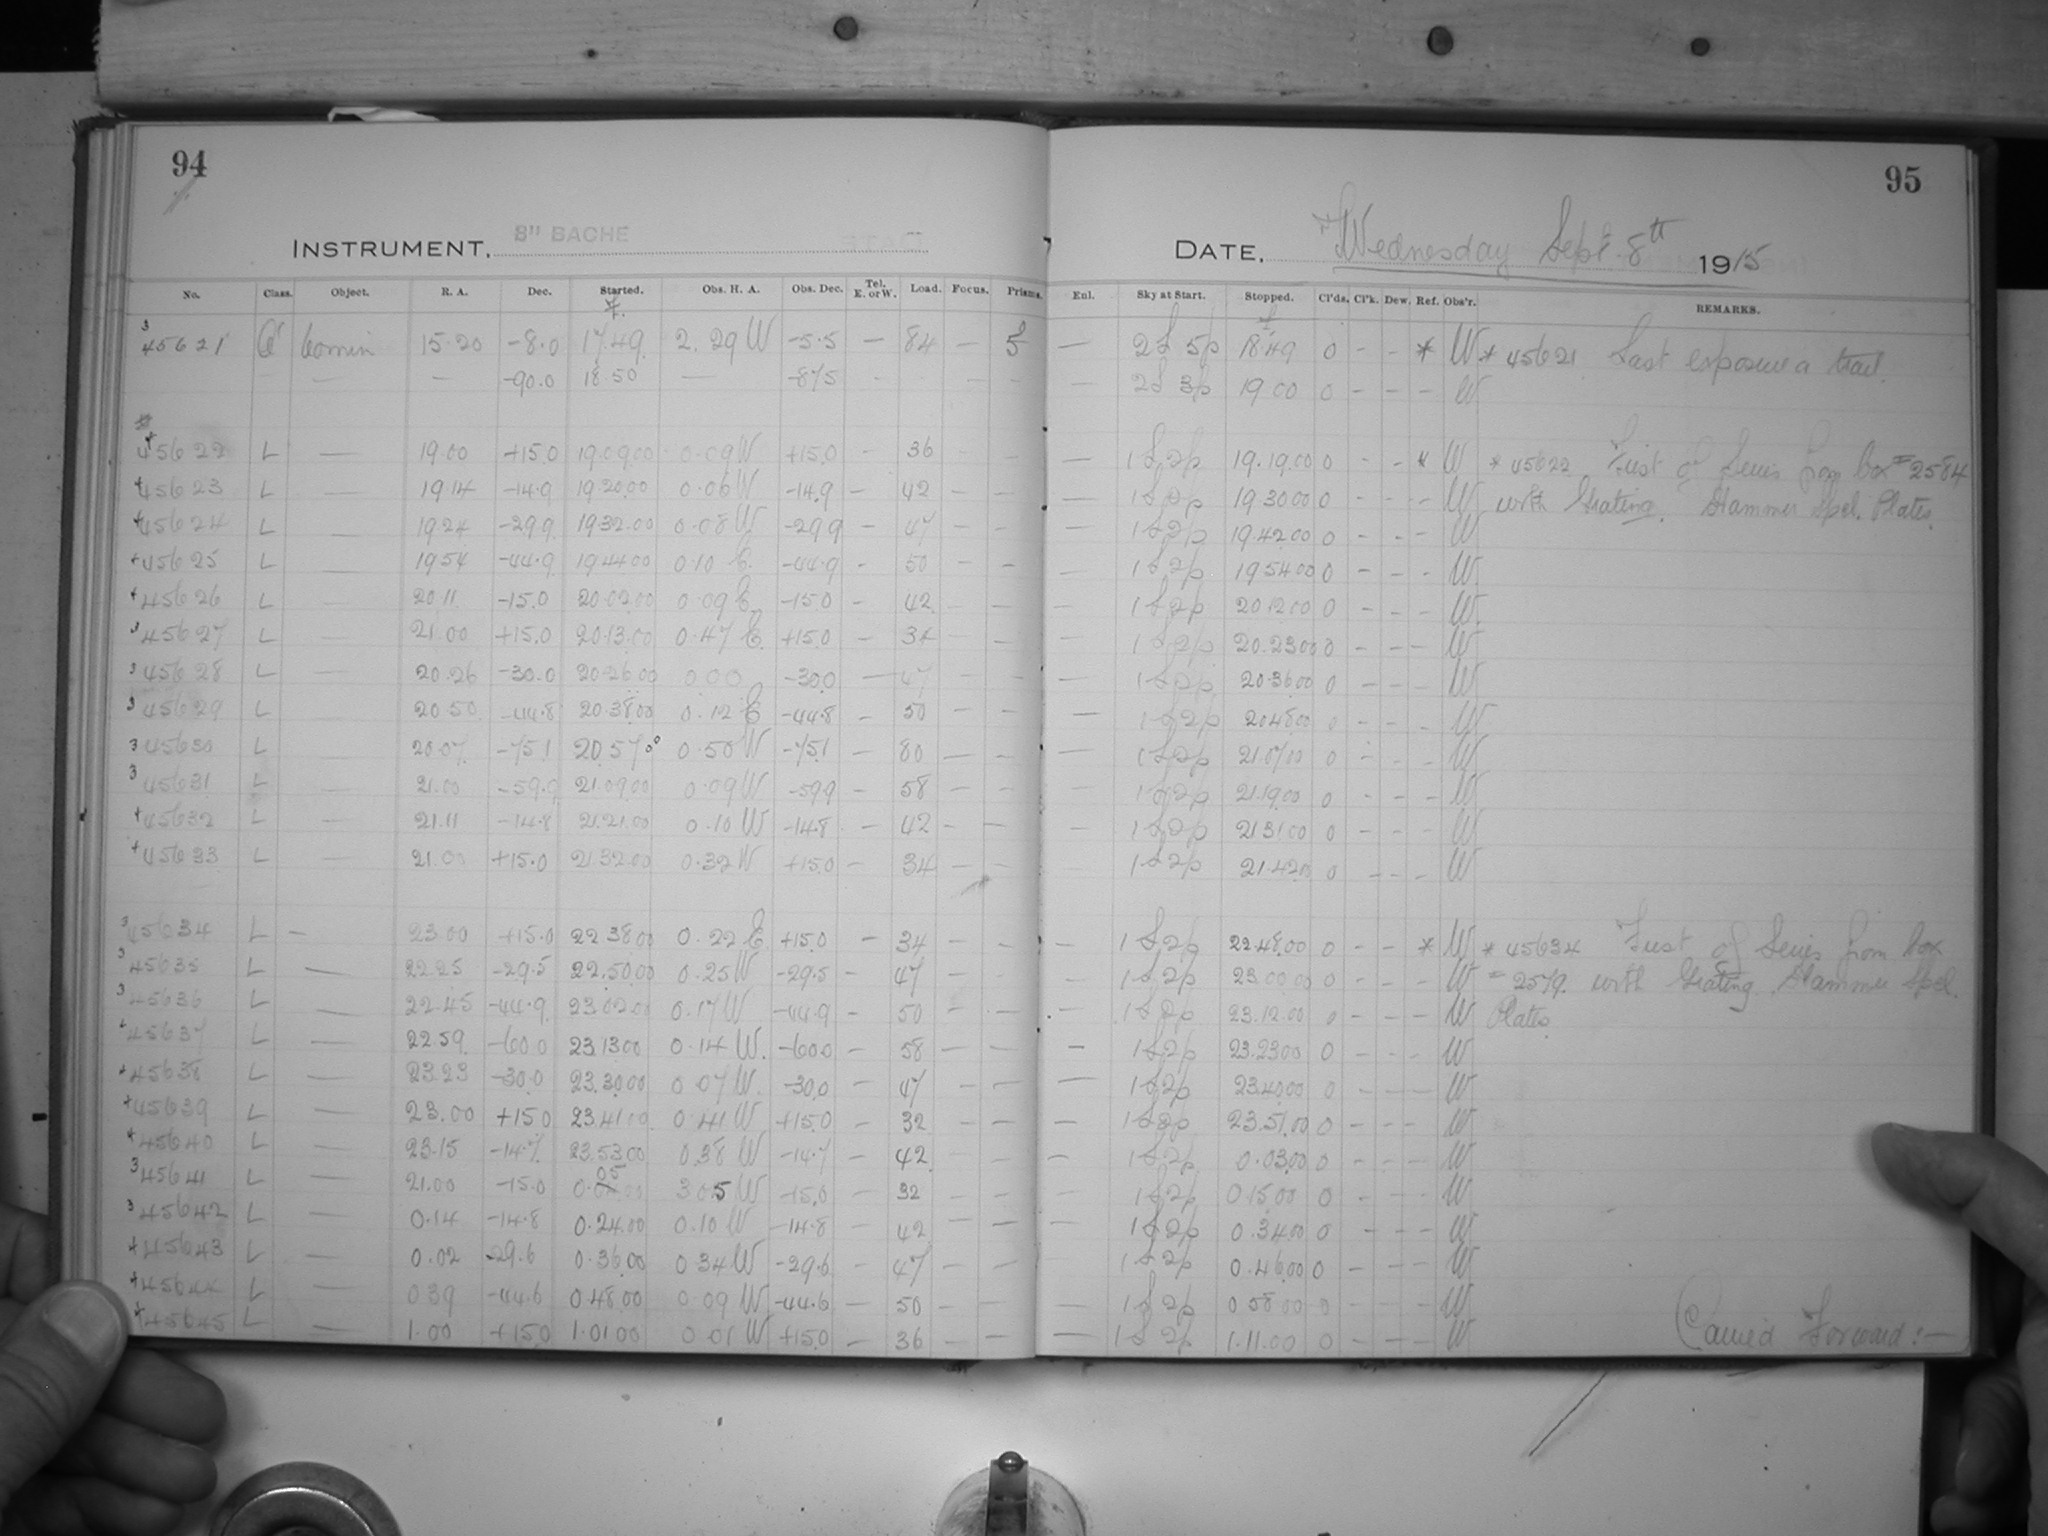 94
95
INSTRUMENT. 8" BACHE
DATE. Wednesday Sept. 8th 1915
No. Class. Object. R. A. Dec. Started. Obs. H. A. Obs. Dec. Tel. E. or W. Load. Focus. Prisms. Enl. Sky at Start. Stopped. Cl'ds. Cl'k. Dew. Ref. Obs'r. REMARKS.
45621 15.20 -8.0 17.49 2.29 W -5.5 — 84 — — 18.49 0 - - * W * 45621 Last exposure a trail.
— — — -90.0 18.50 — -87.5 - - - - — 19.00 0 - - - W
45622 L — 19.00 +15.0 19.09.00 0.09 W +15.0 - 36 - - — 1 S 2p 19.19.00 0 - - * W * 45622 First of Series from box #2584
45623 L — 19.14 -14.9 19.20.00 0.06 W -14.9 — 42 - - — 1 S 2p 19.30.00 0 - - - W with Grating. Hammer Spcl. Plates.
45624 L — 19.24 -29.9 19.32.00 0.08 W -29.9 - 47 - - — 1 S 2p 19.42.00 0 - - - W
45625 L — 19.54 -44.9 19.44.00 0.10 E. -44.9 - 50 - - — 1 S 2p 19.54.00 0 - - - W.
45626 L — 20.11 -15.0 20.02.00 0.09 E -15.0 - 42 - - — 1 S 2p 20.12.00 0 - - - W.
45627 L — 21.00 +15.0 20.13.00 0.47 E. +15.0 - 34 - - — 1 S 2p 20.23.00 0 - - - W
45628 L — 20.26 -30.0 20.26.00 0.00 -30.0 — 47 - - — 1 S 2p 20.36.00 0 - - - W
45629 L — 20.50 -44.8 20.38.00 0.12 E -44.8 - 50 - - — 1 S 2p 20.48.00 0 - - - W
45630 L — 20.07 -75.1 20.57.00 0.50 W -75.1 - 80 - - — 1 S 2p 21.07.00 0 - - - W
45631 L — 21.00 -59.9 21.09.00 0.09 W -59.9 - 58 - - — 1 S 2p 21.19.00 0 - - - W
45632 L — 21.11 -14.8 21.21.00 0.10 W -14.8 - 42 - - — 1 S 2p 21.31.00 0 - - - W
45633 L — 21.00 +15.0 21.32.00 0.32 W +15.0 - 34 - - — 1 S 2p 21.42.00 0 - - - W
45634 L — 23.00 +15.0 22.38.00 0.22 E +15.0 - 34 - - — 1 S 2p 22.48.00 0 - - * W * 45634 First of Series from box
45635 L — 22.25 -29.5 22.50.00 0.25 W -29.5 - 47 - - — 1 S 2p 23.00.00 0 - - - W #2579. with Grating. Hammer Spcl.
45636 L — 22.45 -44.9 23.02.00 0.17 W -44.9 - 50 - - — 1 S 2p 23.12.00 0 - - - W Plates
45637 L — 22.59 -60.0 23.13.00 0.14 W. -60.0 - 58 - - — 1 S 2p 23.23.00 0 - - - W
45638 L — 23.23 -30.0 23.30.00 0.07 W. -30.0 - 47 - - — 1 S 2p 23.40.00 0 - - - W
45639 L — 23.00 +15.0 23.41.00 0.41 W +15.0 - 32 - - — 1 S 2p 23.51.00 0 - - - W
45640 L — 23.15 -14.7 23.53.00 0.38 W -14.7 - 42 - - — 1 S 2p 0.03.00 0 - - - W
45641 L — 21.00 -15.0 0.05.00 3.05 W -15.0 - 32 - - — 1 S 2p 0.15.00 0 - - - W
45642 L — 0.14 -14.8 0.24.00 0.10 W -14.8 - 42 - - — 1 S 2p 0.34.00 0 - - - W
45643 L — 0.02 -29.6 0.36.00 0.34 W -29.6 - 47 - - — 1 S 2p 0.46.00 0 - - - W
45644 L — 0.39 -44.6 0.48.00 0.09 W -44.6 - 50 - - — 1 S 2p 0.58.00 0 - - - W
45645 L — 1.00 +15.0 1.01.00 0.01 W +15.0 - 36 - - — 1 S 2p 1.11.00 0 - - - W Carried Forward:—